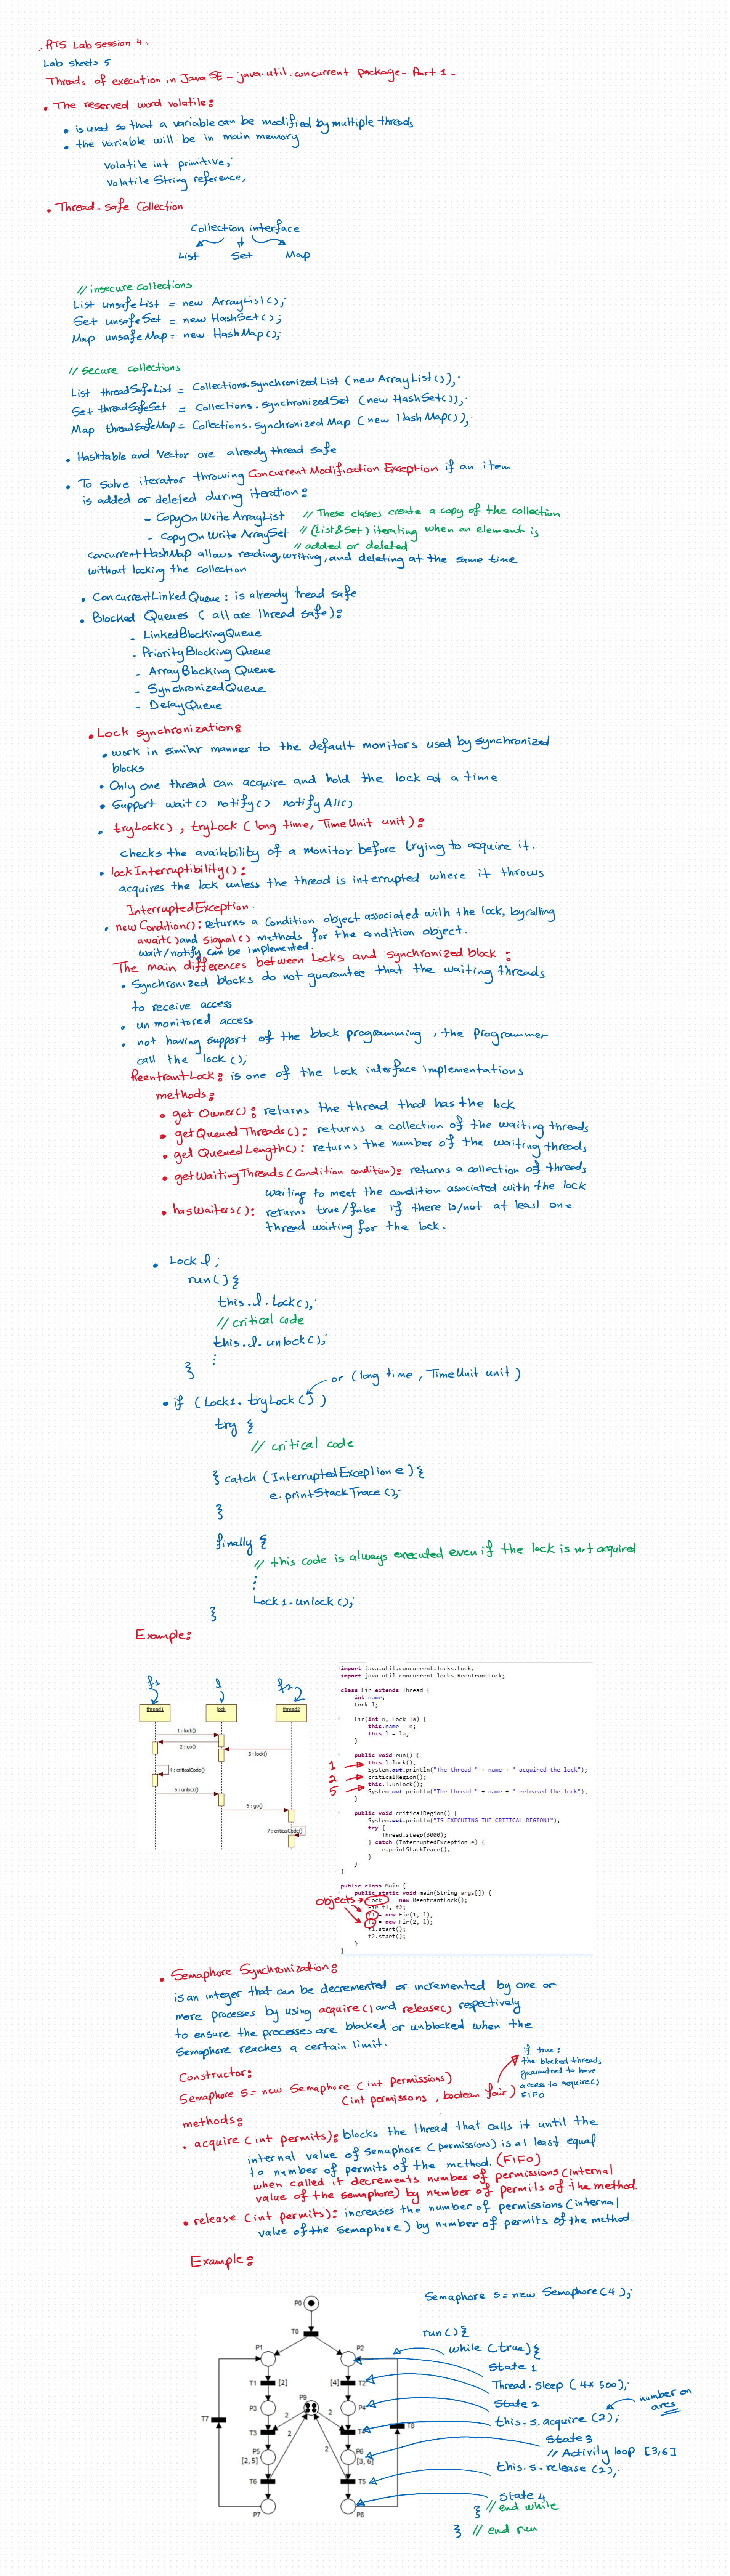 .. RTS Lab session 4 ..
Lab sheets 5
Threds of execution in Java SE - java.util.concurrent package - Part 1 -
• The reserved word volatile:
• is used so that a variable can be modified by multiple threads
• the variable will be in main memory
volatile int primitive;
volatile String reference;
• Thread-safe Collection
Collection interface
List Set Map
// insecure collections
List unsafe List = new ArrayList();
Set unsafe Set = new HashSet();
Map unsafe Map = new HashMap();
// secure collections
List threadSafeList = Collections.synchronizedList (new ArrayList());
Set threadSafeSet = Collections.synchronizedSet (new HashSet());
Map threadSafeMap = Collections.synchronized Map (new HashMap());
• Hashtable and Vector are already thread safe
• To solve iterator throwing Concurrent Modification Exception if an item
is added or deleted during iteration:
- CopyOnWrite ArrayList // These classes create a copy of the collection
- CopyOnWrite ArraySet // (List & Set) iterating when an element is
// added or deleted
concurrentHashMap allows reading, writing, and deleting at the same time
without locking the collection
• ConcurrentLinkedQueue: is already tread safe
• Blocked Queues (all are thread safe):
- LinkedBlockingQueue
- PriorityBlocking Queue
- ArrayBlocking Queue
- SynchronizedQueue
- DelayQueue
• Lock synchronization:
• work in similar manner to the default monitors used by synchronized
blocks
• Only one thread can acquire and hold the lock at a time
• Support wait() notify() notifyAll()
• tryLock(), tryLock (long time, TimeUnit unit):
checks the availability of a monitor before trying to acquire it.
• lockInterruptibility():
acquires the lock unless the thread is interrupted where it throws
InterruptedException.
• newCondition(): returns a Condition object associated with the lock, by calling
await() and signal() methods for the condition object.
wait/notify can be implemented.
The main differences between Locks and Synchronized block:
• Synchronized blocks do not guarantee that the waiting threads
to receive access
• un monitored access
• not having support of the block programming, the programmer
call the lock();
ReentrantLock: is one of the Lock interface implementations
methods:
• get Owner(): returns the thread that has the lock
• getQueuedThreads(): returns a collection of the waiting threads
• get QueuedLength(): returns the number of the waiting threads
• getWaitingThreads (Condition condition): returns a collection of threads
waiting to meet the condition associated with the lock
• hasWaiters(): returns true/false if there is/not at least one
thread waiting for the lock.
• Lock l;
run() {
this.l.Lock();
// critical code
this.l.unlock();
⋮
}
or (long time, TimeUnit unit)
• if (Lock1.tryLock())
try {
// critical code
} catch (InterruptedException e) {
e.printStackTrace();
}
finally {
// this code is always executed even if the lock is not acquired
⋮
Lock1.unlock();
}
Example:
f1 l f2
thread1 lock thread2
1 : lock()
2 : go()
3 : lock()
4 : criticalCode()
5 : unlock()
6 : go()
7 : criticalCode()
import java.util.concurrent.locks.Lock;
import java.util.concurrent.locks.ReentrantLock;
class Fir extends Thread {
int name;
Lock l;
Fir(int n, Lock la) {
this.name = n;
this.l = la;
}
public void run() {
1 this.l.lock();
System.out.println("The thread " + name + " acquired the lock");
2 criticalRegion();
5 this.l.unlock();
System.out.println("The thread " + name + " released the lock");
}
public void criticalRegion() {
System.out.println("IS EXECUTING THE CRITICAL REGION!");
try {
Thread.sleep(3000);
} catch (InterruptedException e) {
e.printStackTrace();
}
}
}
public class Main {
public static void main(String args[]) {
Objects Lock = new ReentrantLock();
Fir f1, f2;
f1 = new Fir(1, l);
f2 = new Fir(2, l);
f1.start();
f2.start();
}
}
• Semaphore Synchronization:
is an integer that can be decremented or incremented by one or
more processes by using acquire() and release() respectively
to ensure the processes are blocked or unblocked when the
Semaphore reaches a certain limit.
Constructor:
Semaphore S = new Semaphore (int permissions)
(int permissons, boolean fair)
if true:
the blocked threads
guaranteed to have
access to acquire()
FIFO
methods:
• acquire (int permits): blocks the thread that calls it until the
internal value of semaphore (permissions) is at least equal
to number of permits of the method. (FIFO)
when called it decrements number of permissions (internal
value of the semaphore) by number of permits of the method.
• release (int permits): increases the number of permissions (internal
value of the semaphore) by number of permits of the method.
Example:
Semaphore S = new Semaphore(4);
P0
T0
P1 P2
T1 [2] [4] T2
P3 P9 P4
2 2
T3 T4
T7 T8
2 2
P5 P6
[2, 5] [3, 6]
T6 T5
P7 P8
run() {
while (true) {
State 1
Thread.sleep (4 * 500);
State 2
number on
arcs
this.s.acquire (2);
State 3
// Activity loop [3,6]
this.s.release (2);
State 4
} // end while
} // end run